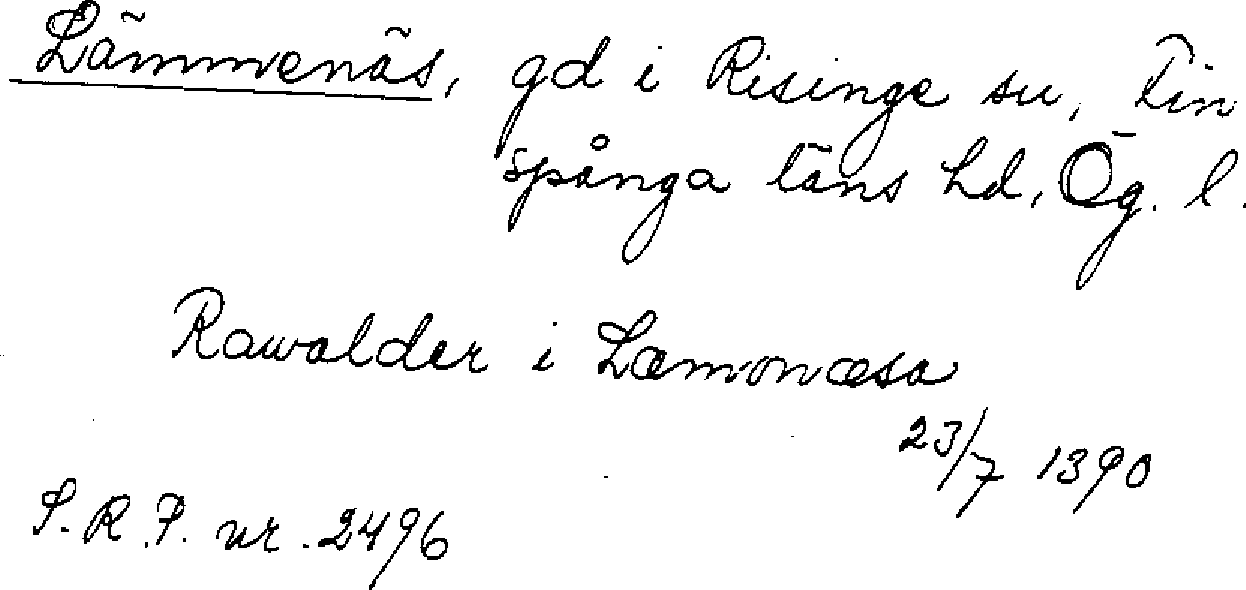 Lämmenäs, gd i Risinge sn, Fin
spånga läns hd, Ög. l.
Rawalder i Læmonæsa
23/7 1390
S.R.P. nr. 2496